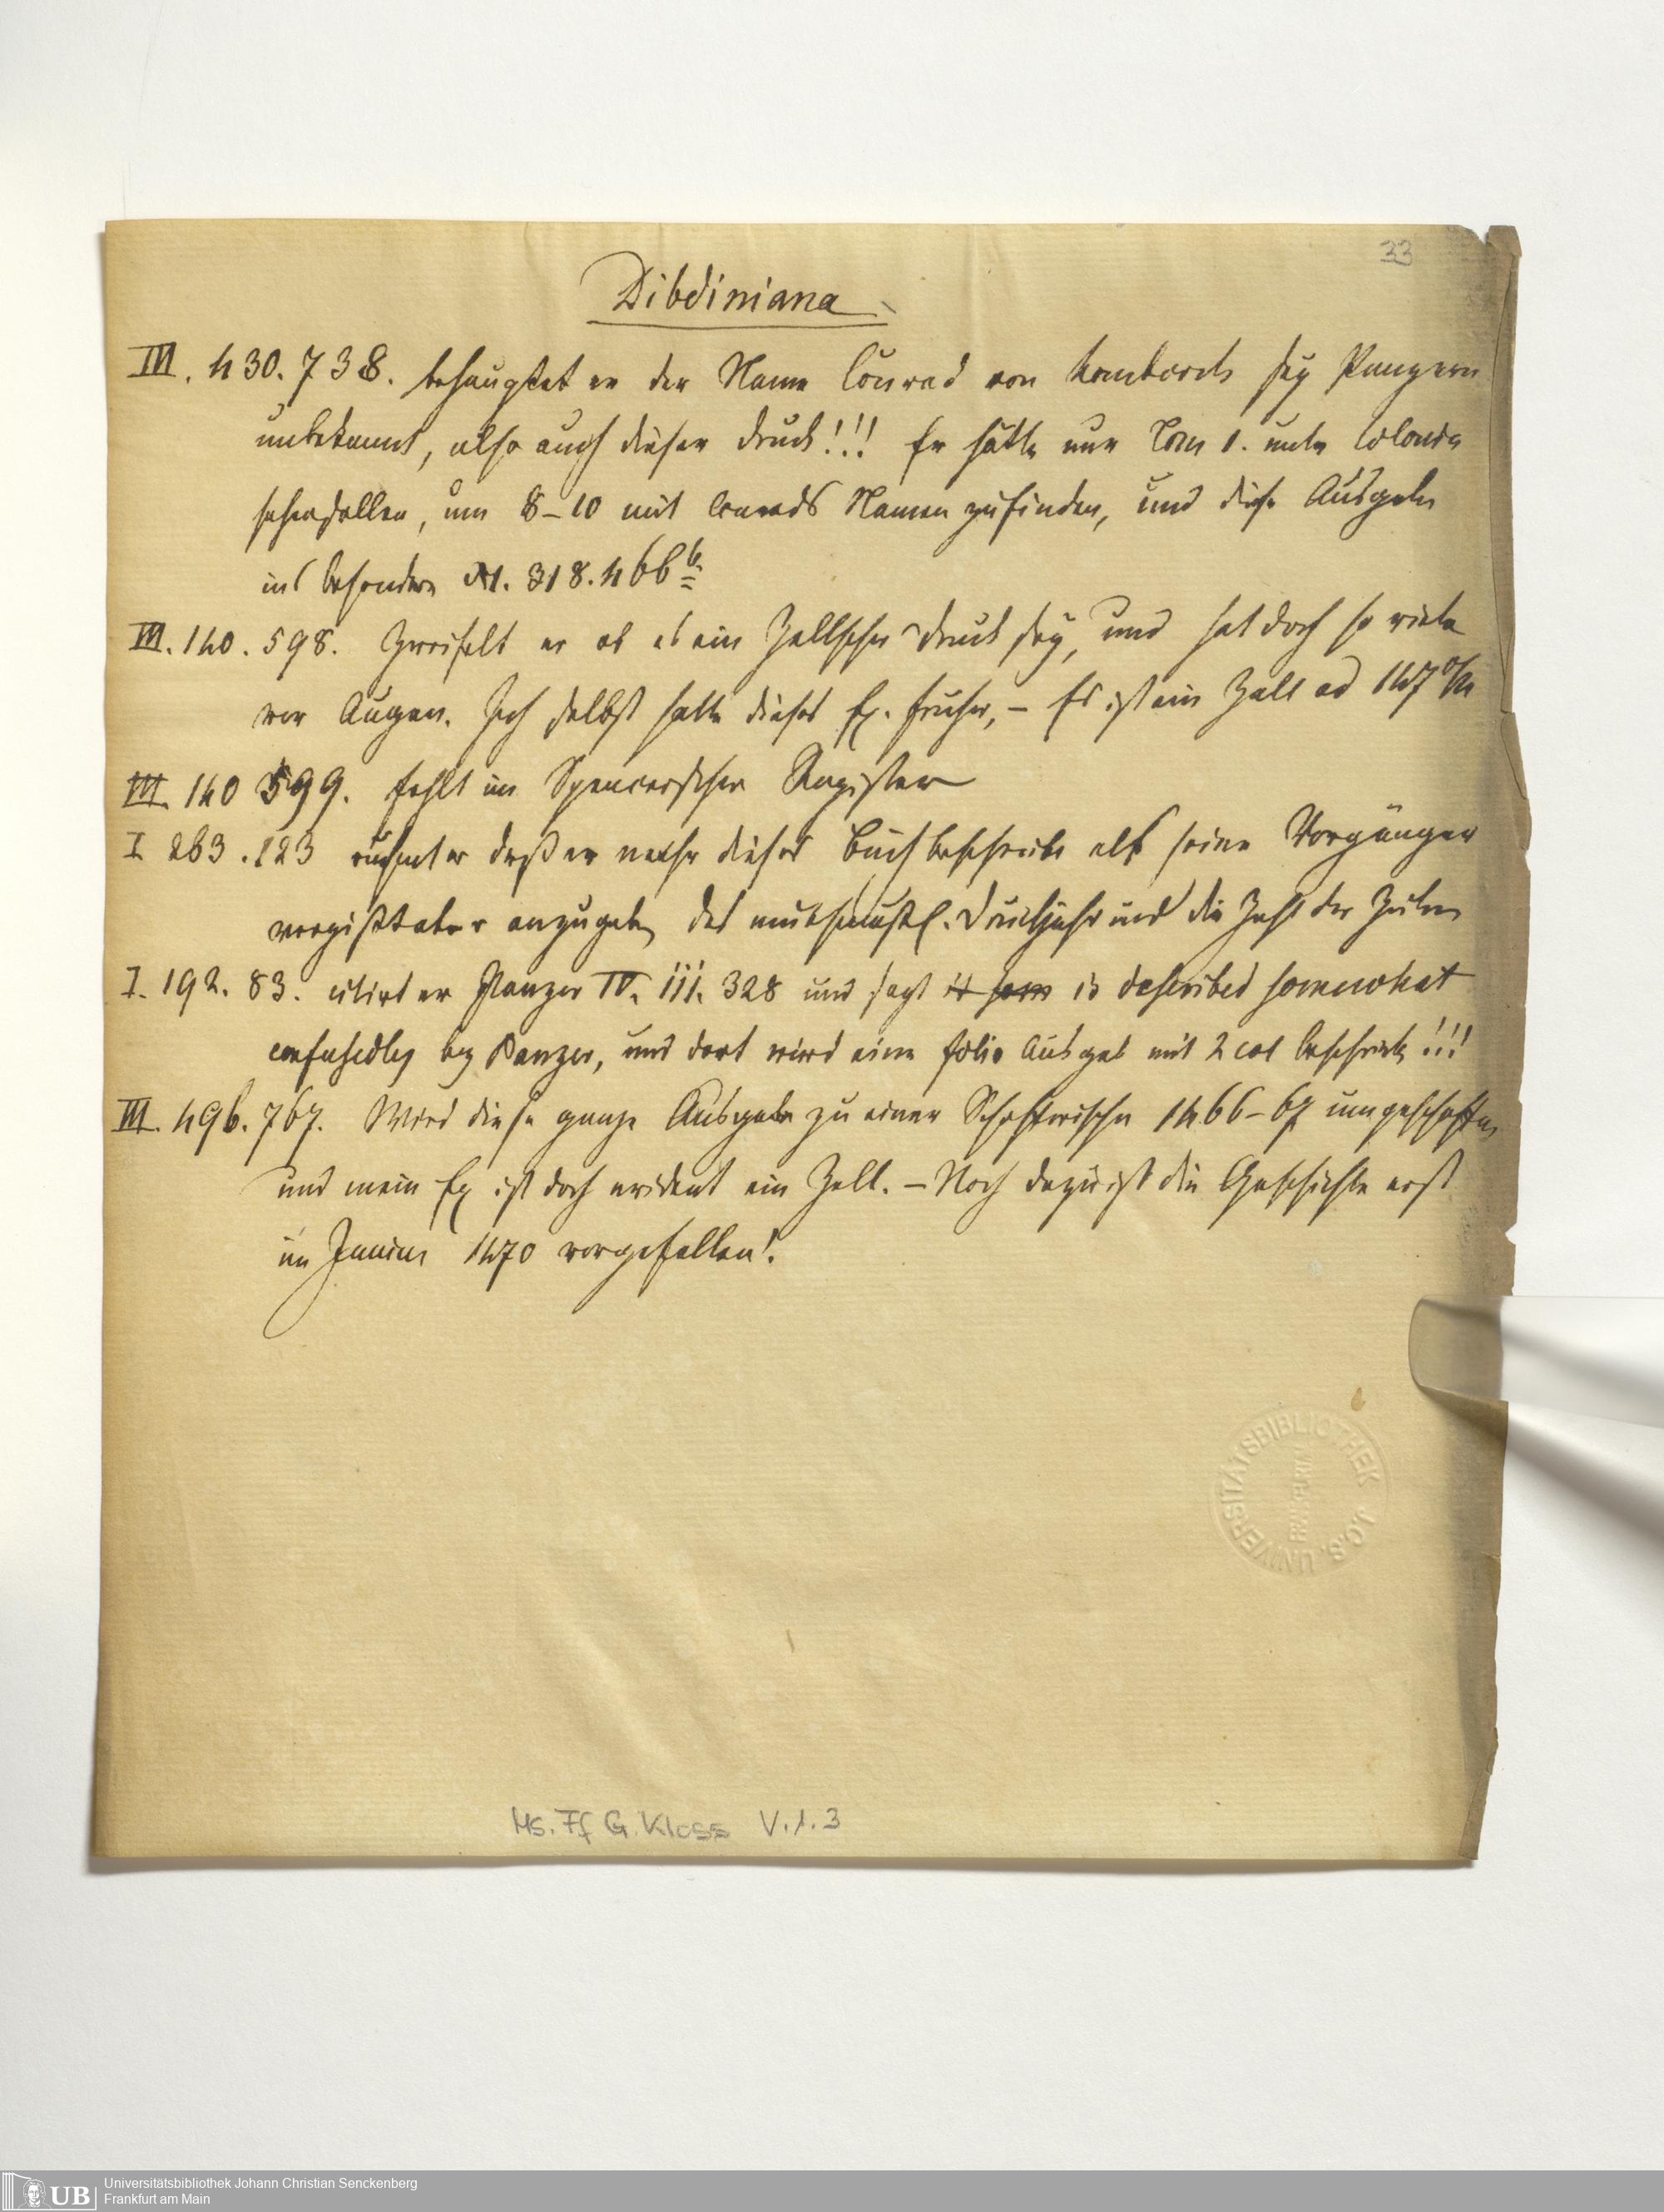 33
Dibdiniana
III. 430. 738. behauptet er der Name Conrad von Homborch sey Panzern
unbekannt, also auch dieser Druck!!! Er hätte nur Tom 1. unter Colonia
sehen sollen, um 8–10 mit Conrads Namen zu finden, und diese Ausgabe
ins besondere N. 318. 466 b
III. 140. 598. Zweifelt er ob es ein Zellscher Druck sey, und hat doch so viele
vor Augen. Ich selbst hatte dieses Ex. früher, – Es ist ein Zell ad 1470/
III. 140 599. fehlt im Spencerschen Register
I 263. 123 rühmt er daß er mehr dieses Buch beschreibe als seine Vorgänger
vergißt aber anzugeben das muthmaßl. Druckjahr und die Zahl der Zeilen
I. 192. 83. citirt er Panzer IV. iii. 328 und sagt it som is described somewhat
confusedly by Panzer, und dort wird eine folio Ausgabe mit 2 col beschrieb!!!
III. 496. 767. Wird diese ganze Ausgabe zu einer Schefferischen 1466–67 umgeschaffen
und mein Ex ist doch evident ein Zell. – Noch dazu ist die Geschichte erst
im Junius 1470 vorgefallen!
UNIVERSITÄTSBIBLIOTHEK J.C.S.
FRANKFURT
Ms. Ff G. Kloss V.1.3
UB
Universitätsbibliothek Johann Christian Senckenberg
Frankfurt am Main